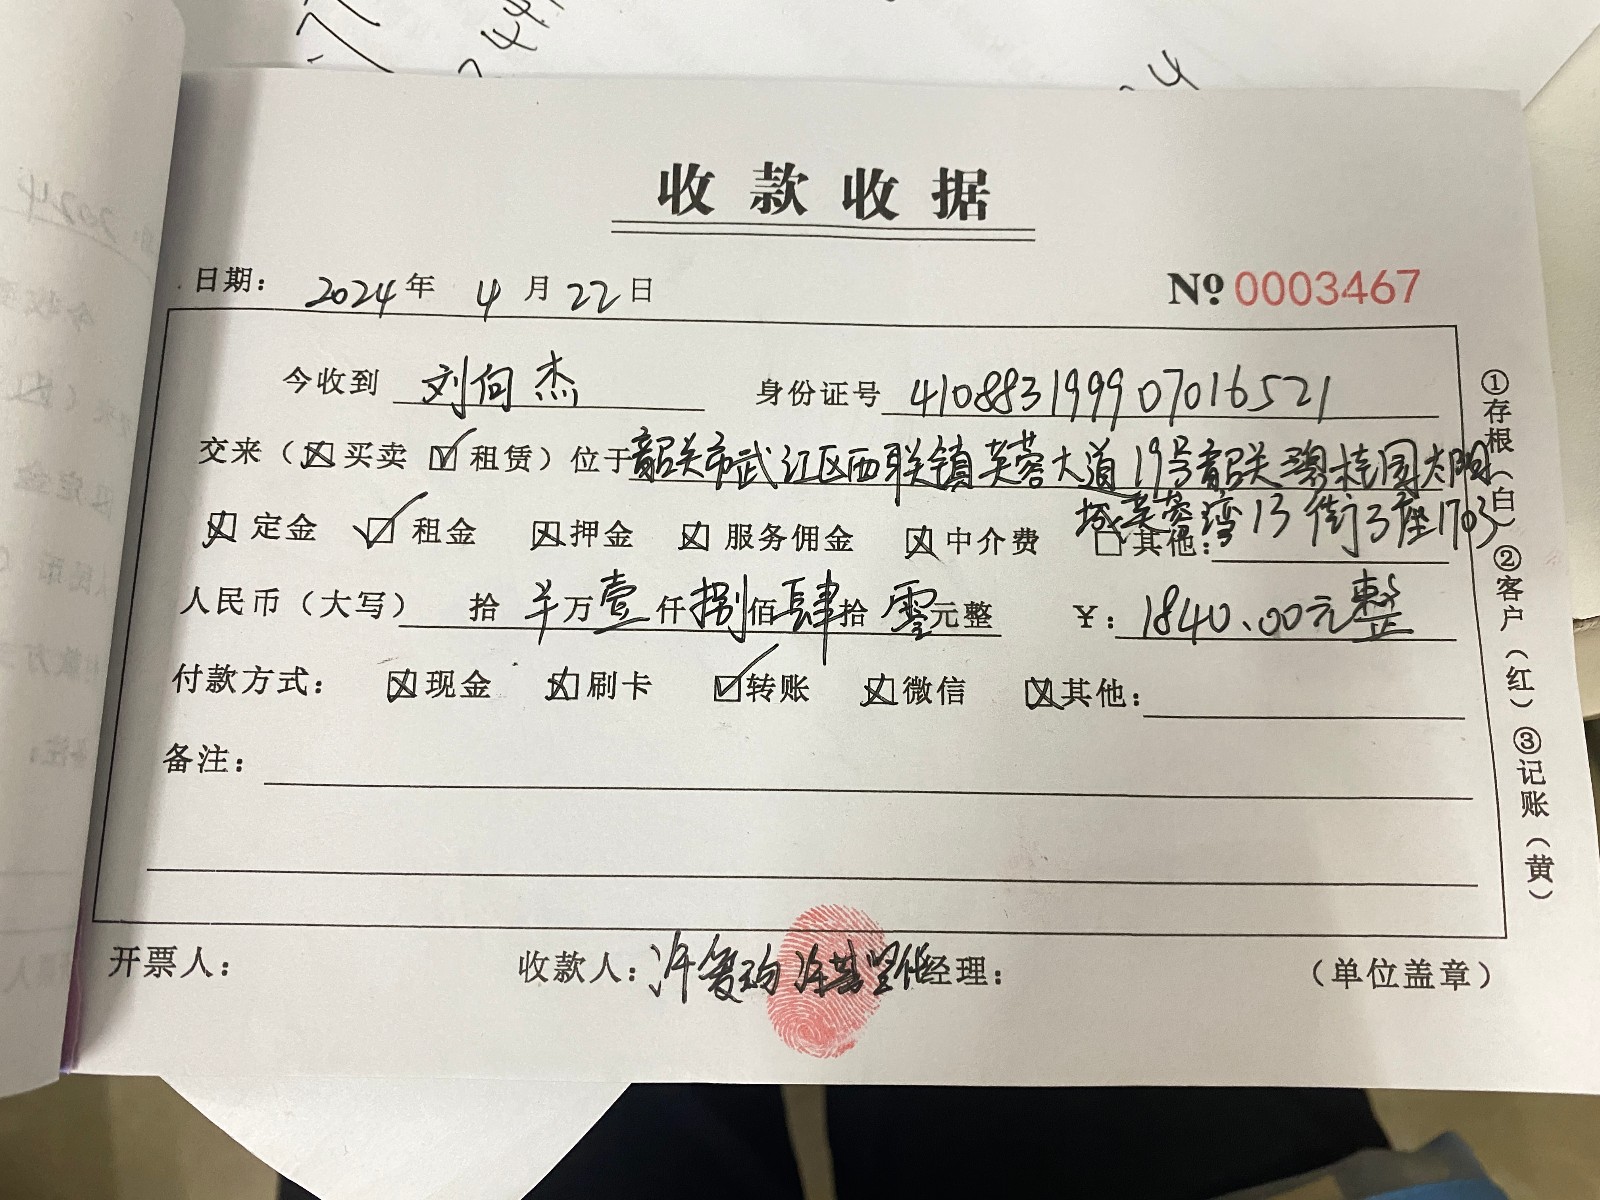 收款收据
日期： 2024 年 4 月 22 日 Nº 0003467
今收到 刘向杰 身份证号 410883199907016521
交来（☒买卖 ☑租赁）位于韶关市武江区西联镇芙蓉大道19号韶关碧桂园太阳
城芙蓉湾13街3座1703
☒定金 ☑租金 ☒押金 ☒服务佣金 ☒中介费 □其他：
人民币（大写） 拾 万壹仟捌佰肆拾零元整 ¥：1840.00元整
付款方式： ☒现金 ☒刷卡 ☑转账 ☒微信 ☒其他：
备注：
开票人： 收款人：许 经理： （单位盖章）
①存根（白）②客户（红）③记账（黄）
2024